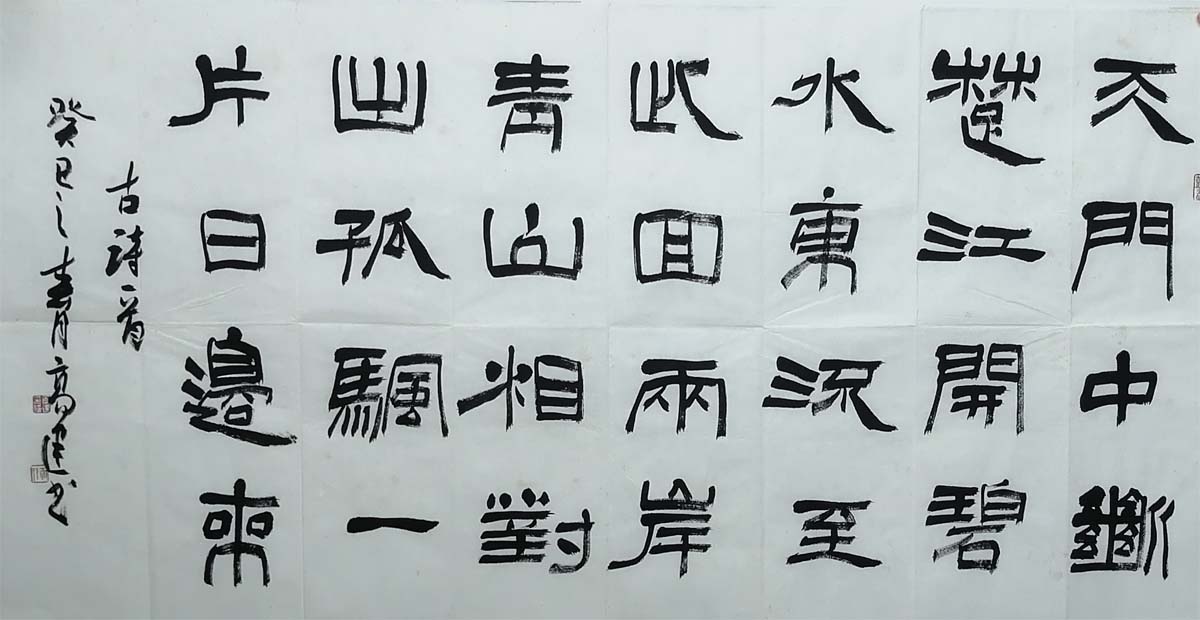 天門中斷
楚江開碧
水東流至
此囬兩岸
青山相對
出孤颿一
片日邊來
古詩一首
癸巳之春月高建书